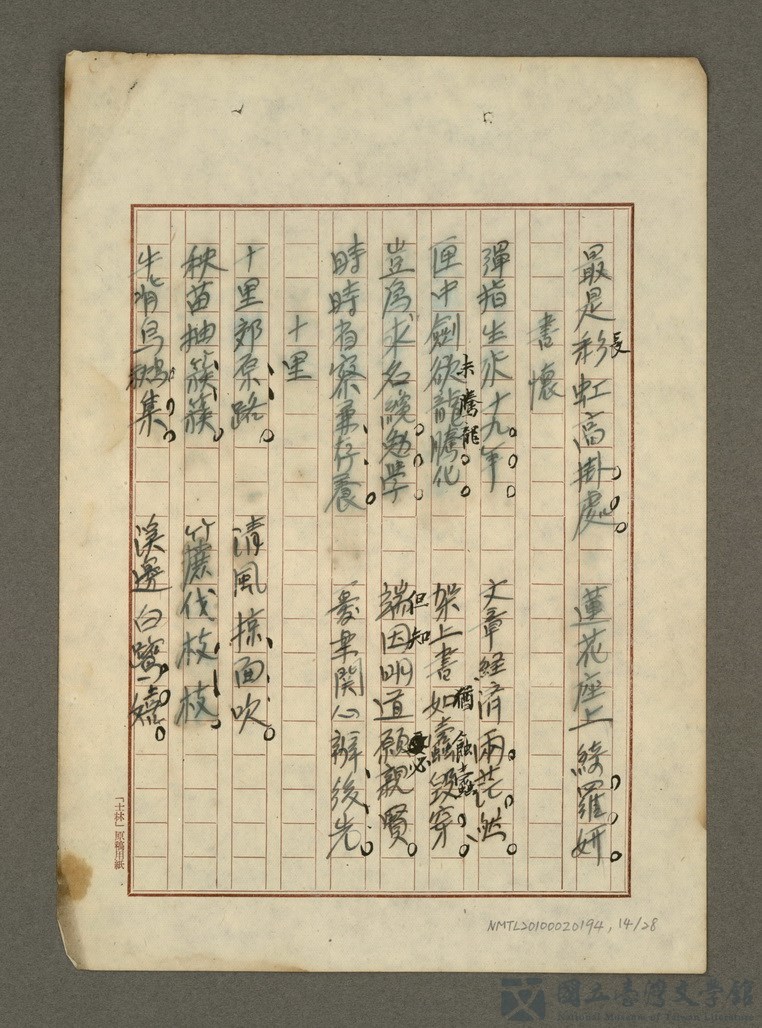 最是彩長虹高掛處。蓮花座上綺羅妍。
書懷
彈指生涯十九年。文章經濟兩茫然。
匣中劍從龍騰化。架上書如蠹毀穿。
未騰龍 猶蝕蠹
豈為求名纔勉學。端因明道願親賢。
但知 必
時時省察兼存養。一事關心辦後先。
十里
十里郊原路。清風掠面吹。
秧苗抽簇簇。竹蔗伐枝枝。
牛背烏鶖集。溪邊白鷺嬉。
「士林」原稿用紙
NMTL20100020194, 14/28
國立臺灣文學館
National Museum of Taiwan Literature